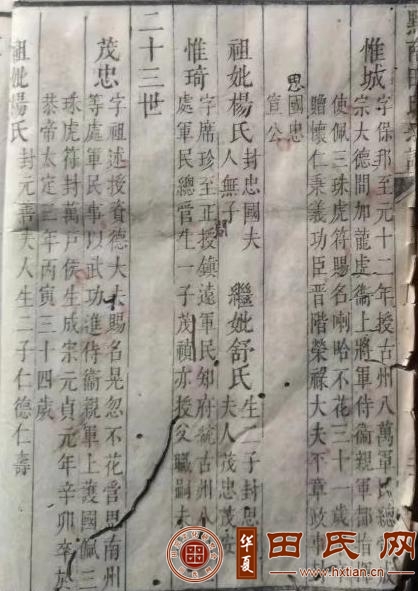 惟城 字保邦至元十二年授古州八萬軍民總
宗大德間加龍虎衞上將軍侍衞親軍都指
使佩三珠虎符賜名喇哈不花三十一歲
贈懷仁秉義功臣晉階榮祿大夫平章政事
思國忠
宣公
祖妣楊氏 封忠國夫人無子 繼妣舒氏 生二子封思夫人茂忠茂安
惟琦 字席珍至正授鎮遠軍民知府統古州八
處軍民總管生一子茂禎亦授父職嗣夫
二十三世
茂忠 字祖述授資德大夫賜名晃忽不花晉思南州
等處軍民事以武功進侍衞親軍上護國佩三
珠虎符封萬戶侯生成宗元貞元年辛卯卒於
泰帝太定三年丙寅三十四歲
祖妣楊氏 封元善夫人生二子仁德仁壽
華夏
田氏网
www.hxtian.cn